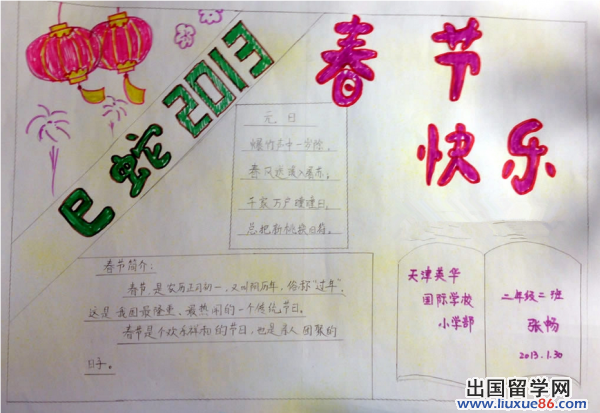 春节
快乐
巳蛇2013
元日
爆竹声中一岁除，
春风送暖入屠苏；
千家万户曈曈日，
总把新桃换旧符。
春节简介：
春节，是农历正月初一，又叫阴历年，俗称“过年”。
这是我国最隆重、最热闹的一个传统节日。
春节是个欢乐祥和的节日，也是亲人团聚的
日子。
天津英华
国际学校
小学部
二年级二班
张畅
2013.1.30
出国留学网
www.liuxue86.com